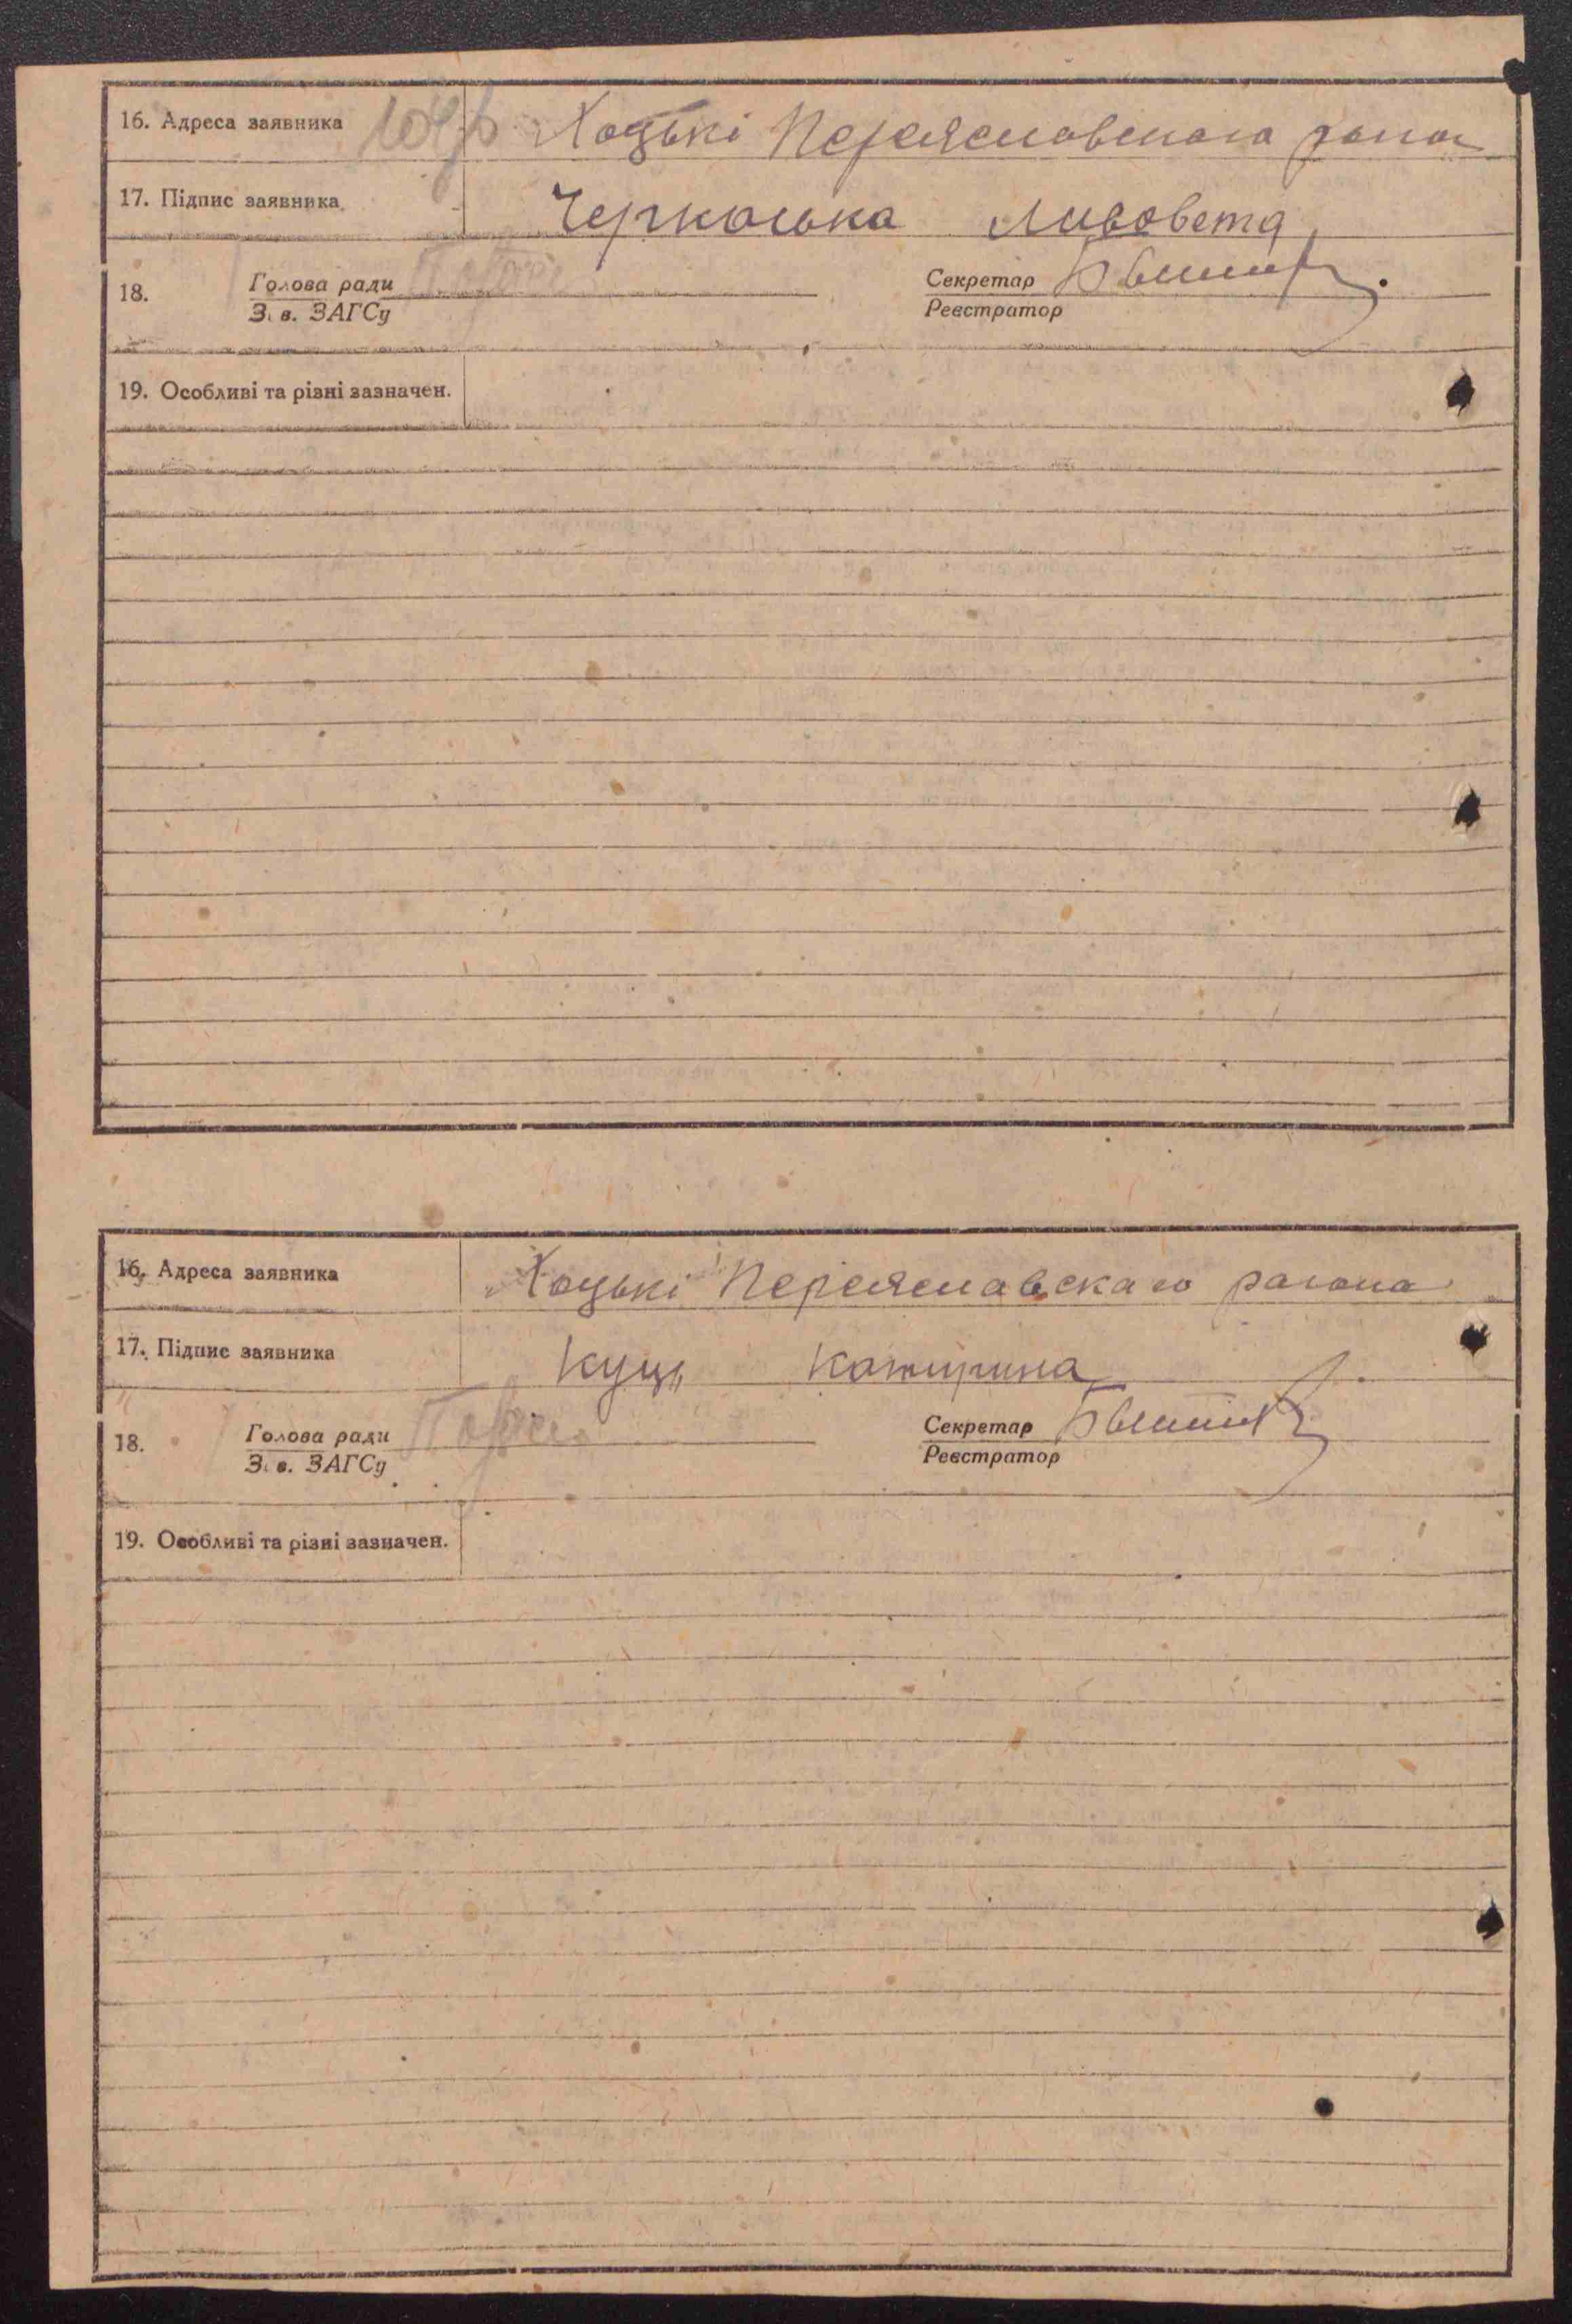 16. Адреса заявника Хоцькі Переяславського район
17. Підпис заявника Черкаська Лизавета
18. Голова ради Секретар
З. в. ЗАГСу Реєстратор
19. Особливі та різні зазначен.
16. Адреса заявника Хоцькі Переяславскаго района
17. Підпис заявника Куць Катирина
18. Голова ради Секретар
З. в. ЗАГСу Реєстратор
19. Особливі та різні зазначен.